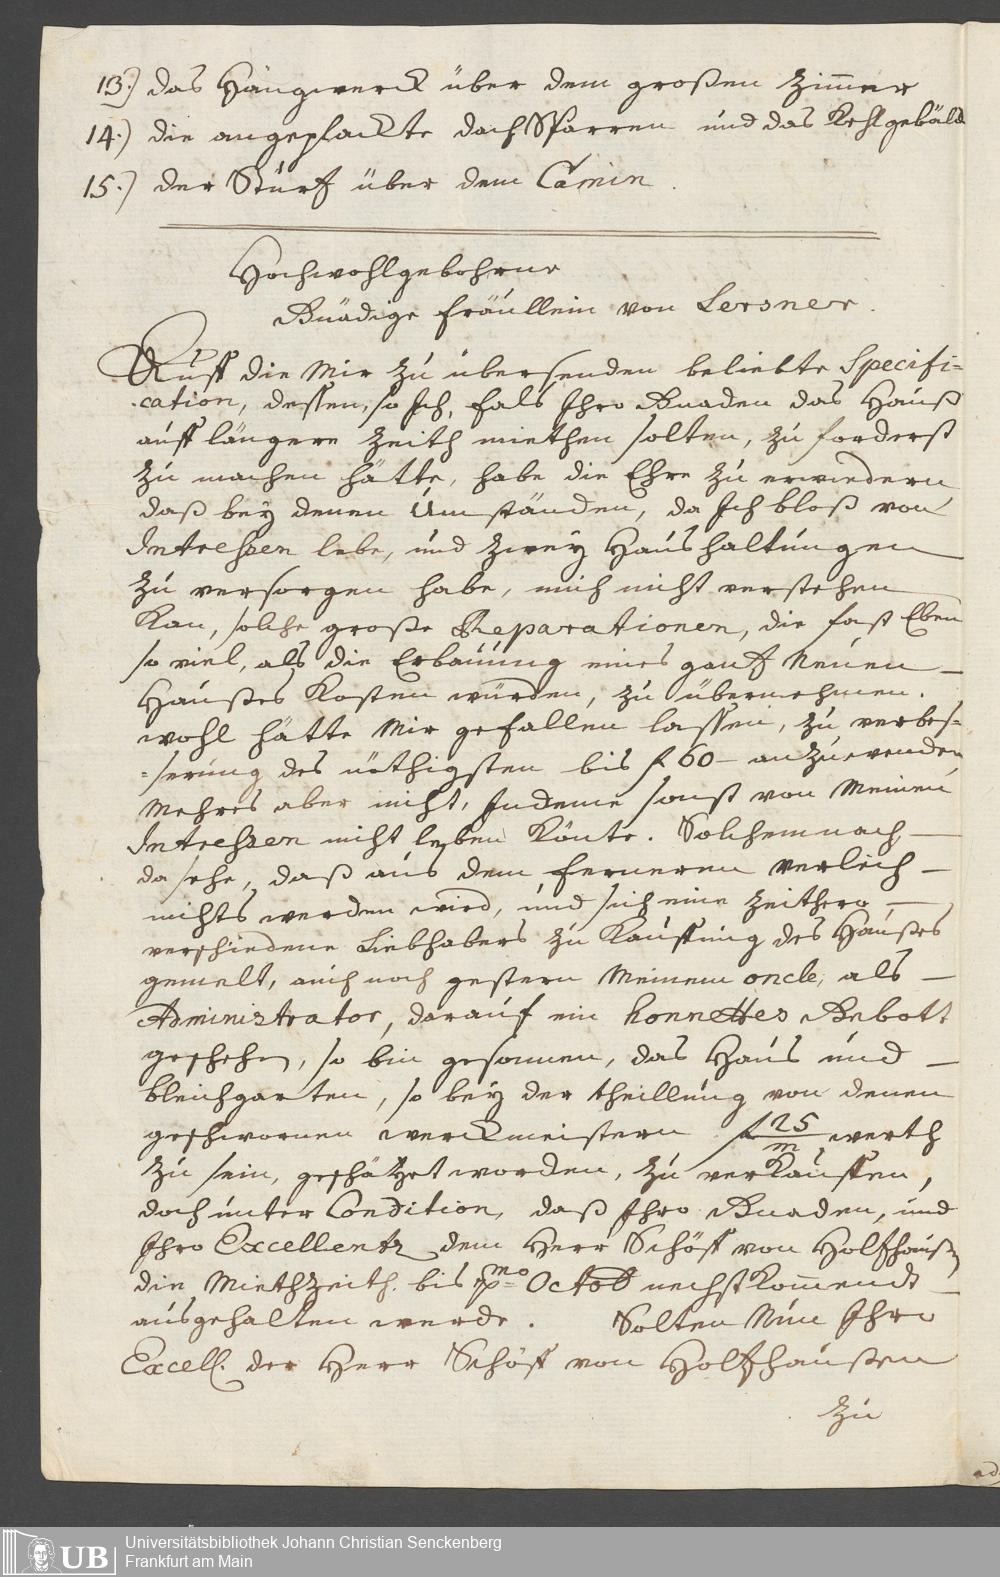 13.) das Hängwerck über dem großen Zim̅er
14.) die angeplackte dachSparren und das Kehlgebälck
15.) der Sturtz über dem Camin.
Hochwohlgebohrne
Gnädige fräullein von Lersner.
Auff die Mir zu übersenden beliebte Specifi=
cation, dessen, so Ich, fals Ihro Gnaden das Hauß
auff längere Zeith miethen solten, zu forderst
zu machen hätte, habe die Ehre zu erwiedern
daß bey denen Umständen, da Ich bloß von
Intressen lebe, und zwey Haushaltungen
zu versorgen habe, mich nicht verstehen
Kan, solche große Reparationen, die fast Eben
so viel, als die Erbauung eines gantz Neuen
Haußes Kosten würden, zu übernehmen.
wohl hätte Mir gefallen lassen, zu verbes=
=serung des nöthigsten bis f 60 – anzuwenden
Mehres aber nicht, Indeme sonst von Meinen
Intressen nicht leben Könte. Solchemnach
da sehe, daß aus dem ferneren verleih
nichts werden wird, und sich eine Zeithero
verschiedene Liebhabers zu Kauffung des Haußes
gemelt, auch noch gestern Meinem oncle, als
Administrator, darauf ein honnettes Gebott
geschehen, so bin gesonnen, das Haus und
bleichgarten, so bey der theillung von denen
geschwornen werckmeistern f 25/m werth
zu sein, geschätzet worden, zu verkauffen,
doch unter Condition, daß Ihro Gnaden, und
Ihro Excellentz dem Herr Schöff von Holtzhaußen
die MiethZeith bis pmo Octob nechstKom̅endt
ausgehalten werde. Solten Nun Ihro
Excell. der Herr Schöff von Holtzhaußen
zu
UB
Universitätsbibliothek Johann Christian Senckenberg
Frankfurt am Main